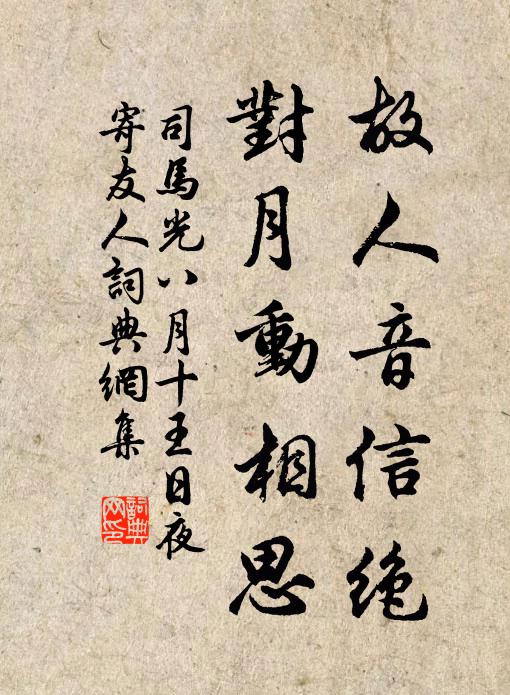 故人音信絶
對月動相思
司馬光八月十五日夜
寄友人詞典網集
詞典
网印